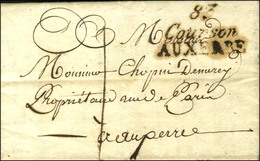 83
M Courson
AUXERRE
Monsieur Chopin Demerey
Propriétaire rue de Paris
à auxerre